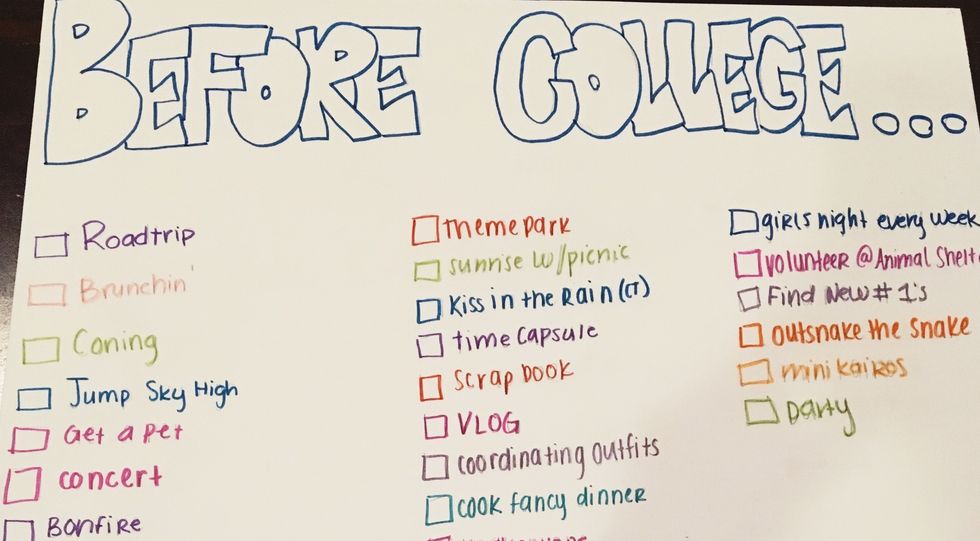 BEFORE COLLEGE...
Roadtrip
Brunchin'
Coning
Jump Sky High
Get a pet
concert
Bonfire
theme park
sunrise w/picnic
Kiss in the Rain (CT)
time capsule
Scrap book
VLOG
coordinating outfits
cook fancy dinner
girls night every week
volunteer @ Animal
Find New # 1's
outsnake the snake
mini kairos
Darty